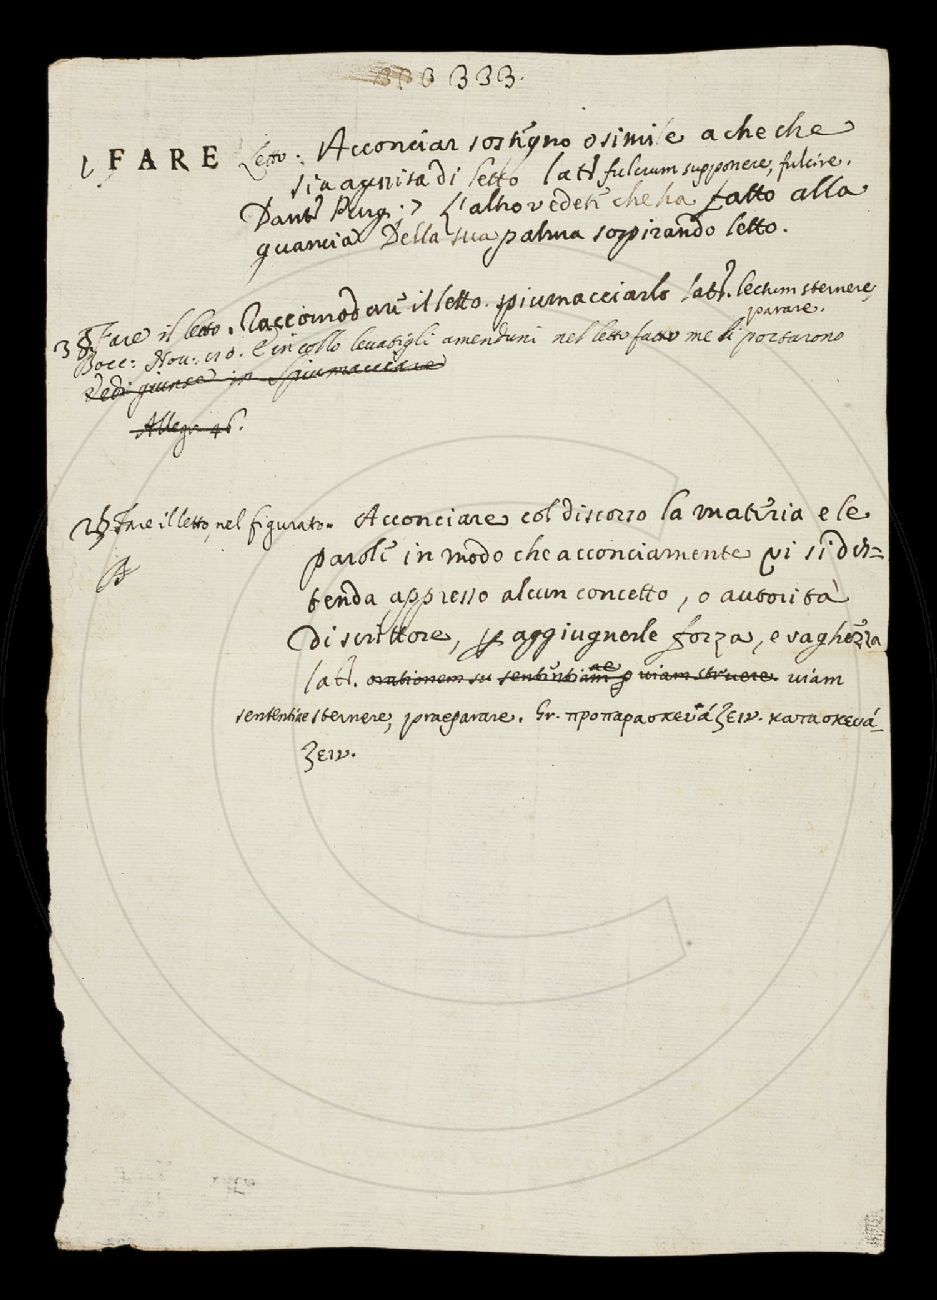 333.
FARE Letto: Acconciar sostegno o simile a che che
sia a guisa di letto latt. fulcrum supponere, fulcire.
Dant. Purg. 7 L'altro vedete che ha fatto alla
guancia Della sua palma sospirando letto.
3 § Fare il letto. Raccomodare il letto. spiumacciarlo latt. lectum sternere,
parare.
Bocc: Nou: E in collo levatigli amenduni nel letto fatto me li portarono
Vedi giunte in Spiumacciare
Allegr. 46.
2 § Fare il letto, nel figurato. Acconciare col discorso la materia e le
parole in modo che acconciamente vi si dis=
tenda appresso alcun concetto, o autorità
di scrittore, p aggiugnerle forza, e vaghezza
latt. orationem su sententiam p viam struere. viam
sententiae sternere, praeparare. Gr. προπαρασκευάζειν. κατασκευά-
ζειν.